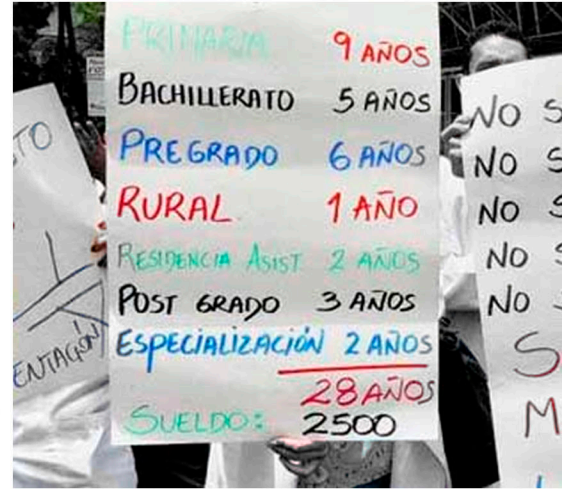 PRIMARIA 9 AÑOS
BACHILLERATO 5 AÑOS
PREGRADO 6 AÑOS
RURAL 1 AÑO
RESIDENCIA ASIST 2 AÑOS
POST GRADO 3 AÑOS
ESPECIALIZACIÓN 2 AÑOS
28 AÑOS
SUELDO: 2500
TO
ENTACIÓN
NO S
NO S
NO S
NO S
NO
S
M